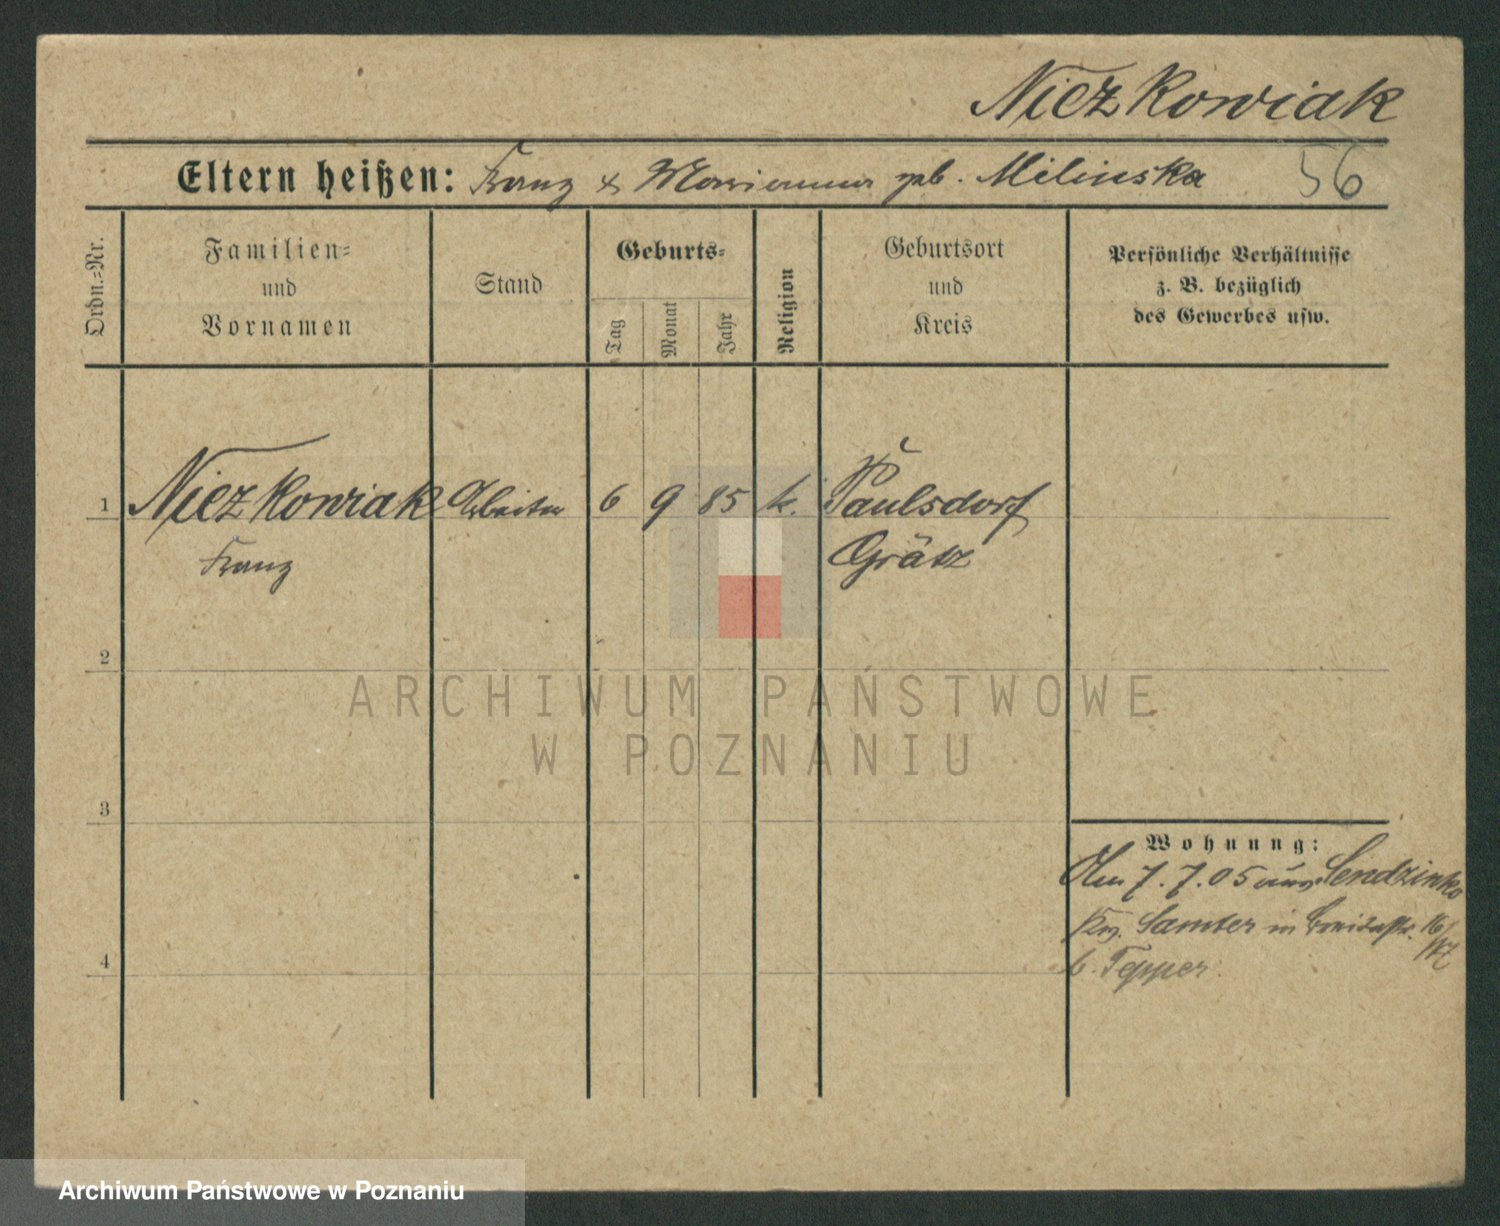 Niezkowiak
Eltern heißen: Franz & Marianna geb. Milinska 56
Ordn.=Nr.
Familien=
und
Vornamen
Stand
Geburts=
Tag
Monat
Jahr
Religion
Geburtsort
und
Kreis
Persönliche Verhältnisse
z. B. bezüglich
des Gewerbes usw.
1 Niezkowiak Arbeiter 6 9 85 k. Paulsdorf
Franz Grätz
2
ARCHIWUM PAŃSTWOWE
W POZNANIU
3
Wohnung:
Am 7. 7. 05 aus Sendzinko
Krs. Samter in 16/
b. Tepper
4
Archiwum Państwowe w Poznaniu